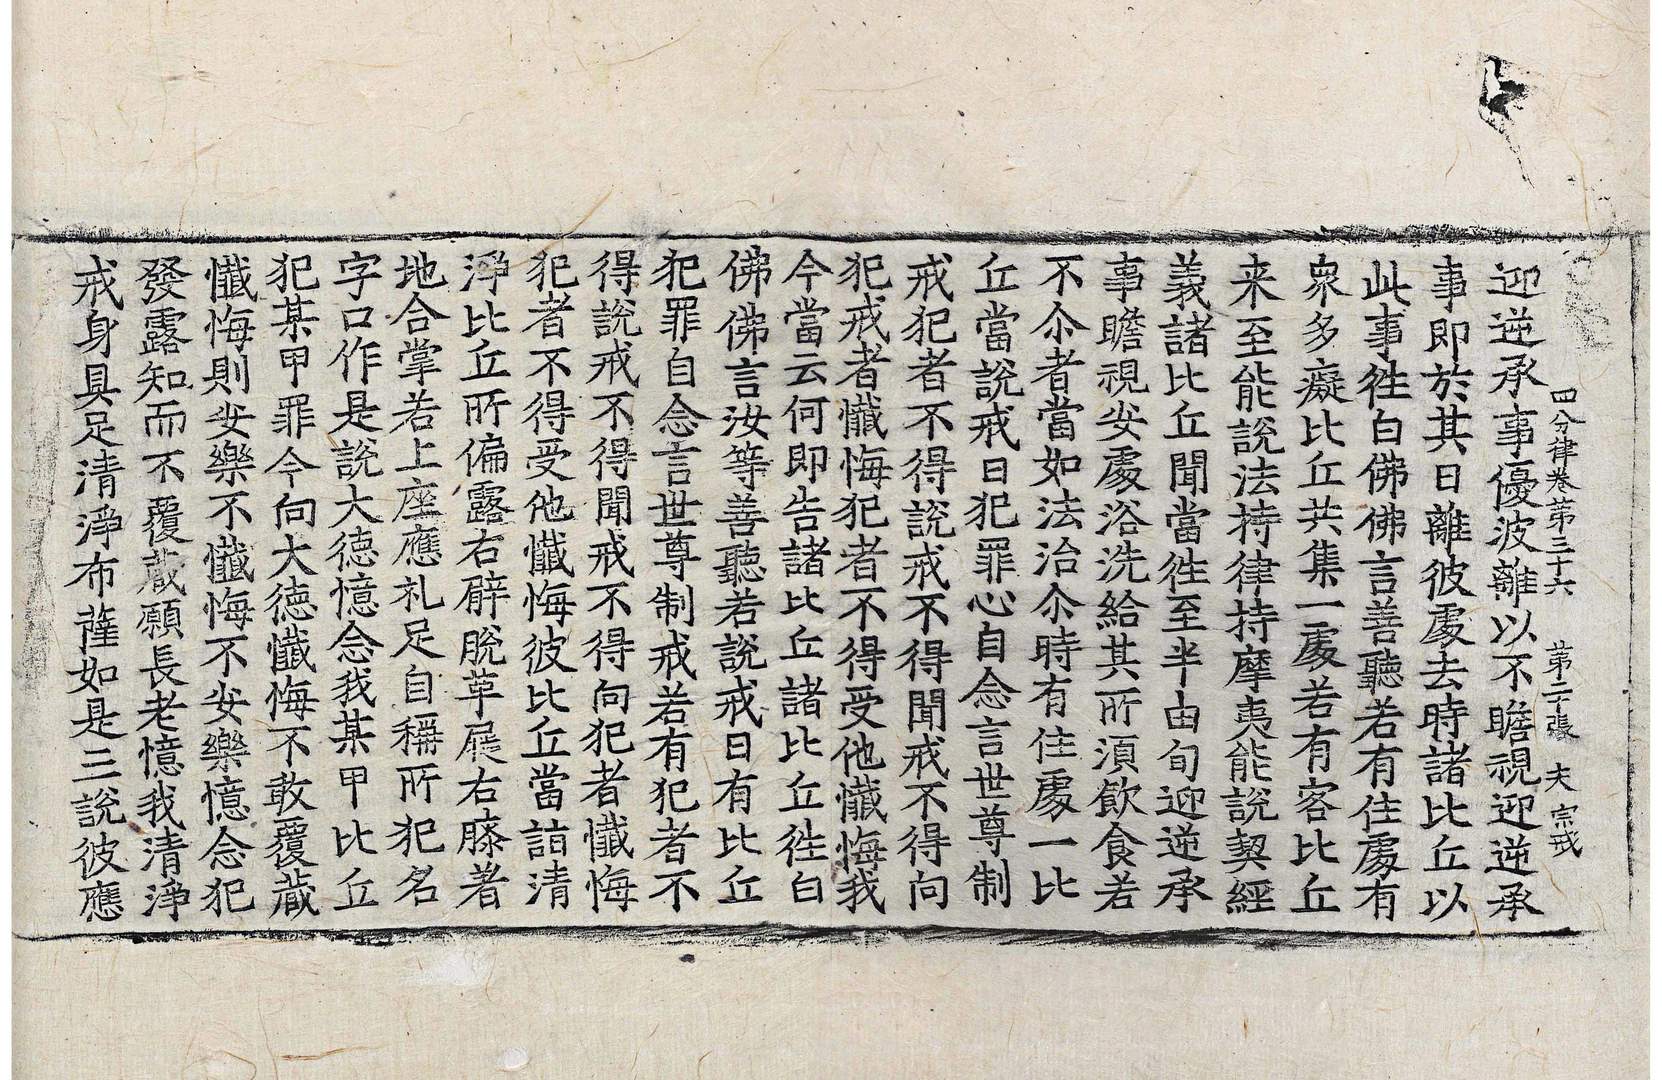 四分律卷第三十六 第二十張 夫 宗戒
迎逆承事優波離以不瞻視迎逆承
事即於其日離彼處去時諸比丘以
此事徃白佛佛言善聽若有住處有
衆多癡比丘共集一處若有客比丘
来至能說法持律持摩夷能說契經
義諸比丘聞當徃至半由旬迎逆承
事瞻視安處浴洗給其所須飲食若
不尒者當如法治尒時有住處一比
丘當說戒日犯罪心自念言世尊制
戒犯者不得說戒不得聞戒不得向
犯戒者懺悔犯者不得受他懺悔我
今當云何即告諸比丘諸比丘徃白
佛佛言汝等善聽若說戒日有比丘
犯罪自念言世尊制戒若有犯者不
得說戒不得聞戒不得向犯者懺悔
犯者不得受他懺悔彼比丘當詣清
淨比丘所偏露右臂脫革屣右膝著
地合掌若上座應礼足自稱所犯名
字口作是說大德憶念我某甲比丘
犯某甲罪今向大德懺悔不敢覆藏
懺悔則安樂不懺悔不安樂憶念犯
發露知而不覆藏願長老憶我清淨
戒身具足清淨布薩如是三說彼應